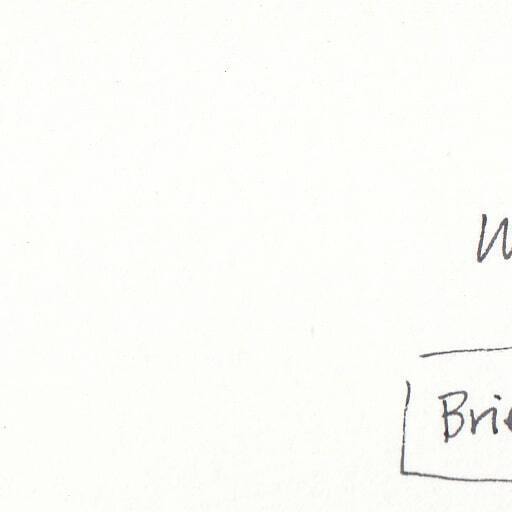 W
Brie